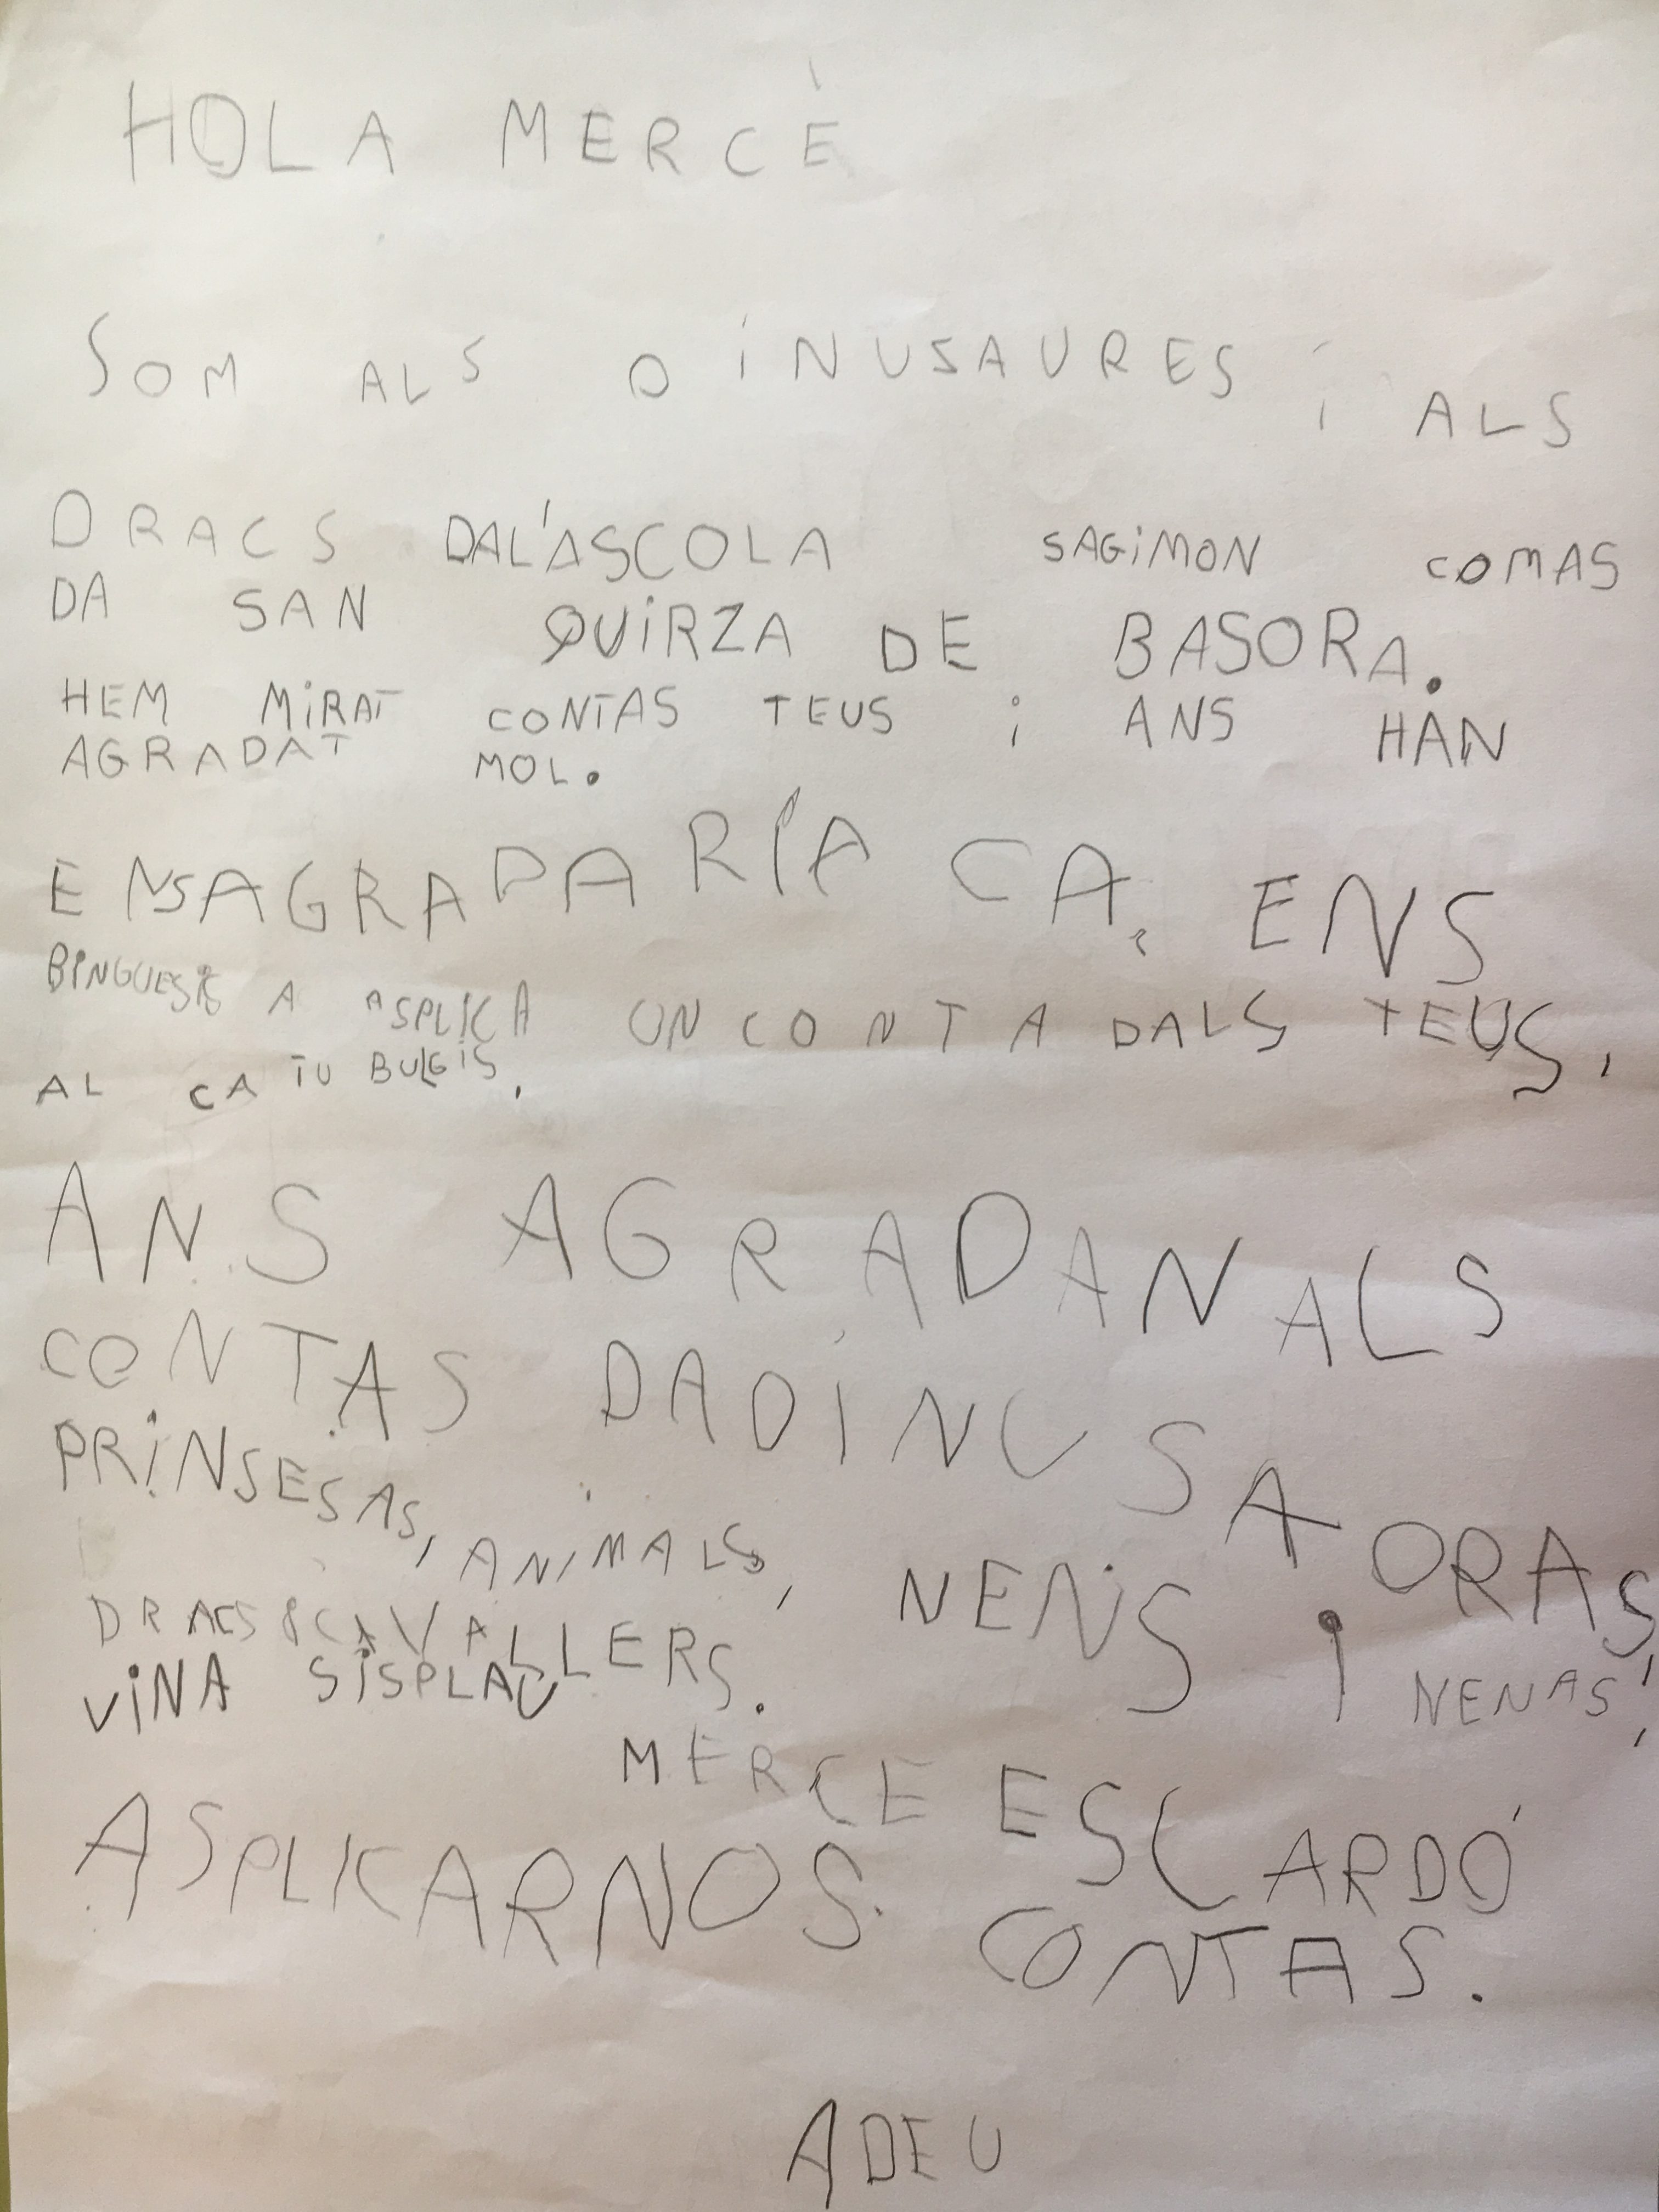 HOLA MERCÈ
SOM ALS DINUSAURES i ALS
DRACS DAL'ASCOLA SAGIMON COMAS
DA SAN QUIRZA DE BASORA.
HEM MIRAT CONTAS TEUS i ANS HAN
AGRADAT MOL.
ENSAGRADARÍA CA ENS
BINGUESIS A ASPLICA UN CONTA DALS TEUS,
AL CA TU BULGIS.
ANS AGRADAN ALS
CONTAS DADINUSAORAS,
PRINSESAS, ANIMALS, NENS i NENAS,
DRACS I CAVALLERS.
VINA SISPLAU MERCE ESCARDÓ
ASPLICARNOS CONTAS.
ADEU